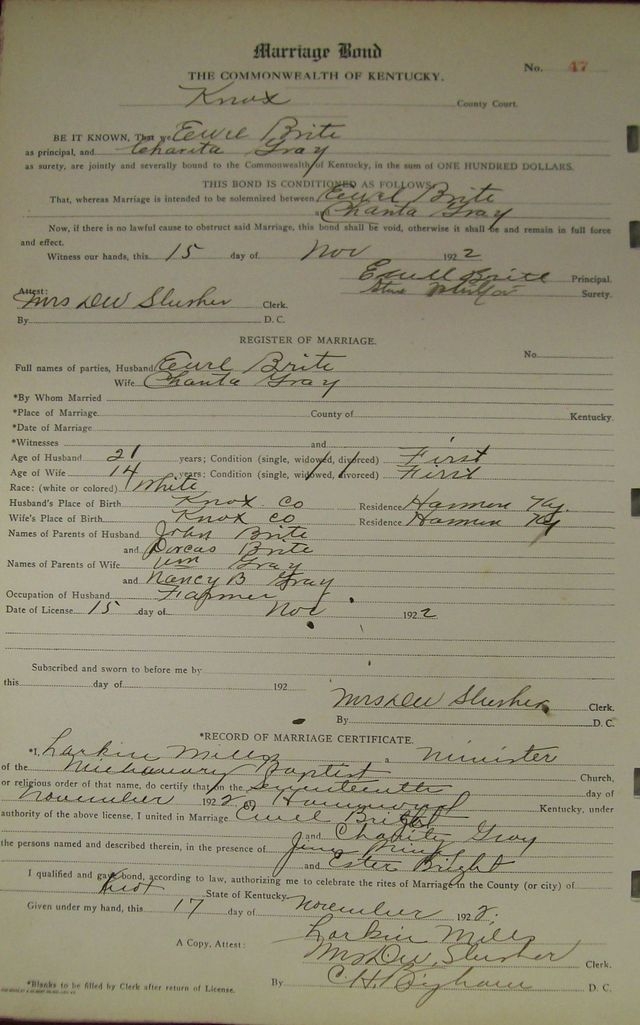 Marriage Bond
No. 47
THE COMMONWEALTH OF KENTUCKY.
Knox County Court.
BE IT KNOWN, That we Ewel Brite
as principal, and Charita Gray
as surety, are jointly and severally bound to the Commonwealth of Kentucky, in the sum of ONE HUNDRED DOLLARS.
THIS BOND IS CONDITIONED AS FOLLOWS:
That, whereas Marriage is intended to be solemnized between Ewel Brite
and Charita Gray
Now, if there is no lawful cause to obstruct said Marriage, this bond shall be void, otherwise it shall be and remain in full force
and effect.
Witness our hands, this 15 day of Nov 1922
Ewell Brite Principal.
Attest: Surety.
Mrs DW Slusher Clerk.
By D. C.
REGISTER OF MARRIAGE.
No.
Full names of parties, Husband Ewel Brite
Wife Charita Gray
*By Whom Married
*Place of Marriage County of Kentucky.
*Date of Marriage
*Witnesses and
Age of Husband 21 years; Condition (single, widowed, divorced) First
Age of Wife 14 years; Condition (single, widowed, divorced) First
Race: (white or colored) White
Husband's Place of Birth Knox Co Residence Hammon Ky.
Wife's Place of Birth Knox Co Residence Hammon Ky
Names of Parents of Husband John Brite
and Dorcas Brite
Names of Parents of Wife Wm Gray
and Nancy B Gray
Occupation of Husband Farmer
Date of License 15 day of Nov 1922
Subscribed and sworn to before me by
this day of 192
Mrs DW Slusher Clerk.
By D. C.
*RECORD OF MARRIAGE CERTIFICATE.
*I, Larkin Mills a Minister
of the Missionary Baptist Church,
or religious order of that name, do certify that on the seventeenth day of
November 1922 Kentucky, under
authority of the above license, I united in Marriage Ewel Bright
and Charity Gray
the persons named and described therein, in the presence of
and Ester Bright
I qualified and gave bond, according to law, authorizing me to celebrate the rites of Marriage in the County (or city) of
State of Kentucky.
Given under my hand, this 17 day of November 1922.
Larkin Mills
A Copy, Attest: Mrs DW. Slusher Clerk.
By C. H. Bigham D. C.
*Blanks to be filled by Clerk after return of License.